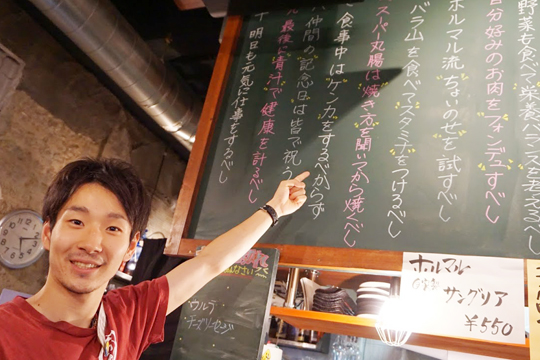 野菜を食べて栄養バランスを考えるべし
自分好みのお肉をフォンデューすべし
ホルマル流ちないのぜを試すべし
バラ山を食べてスタミナをつけるべし
スパ丸腸は焼き方を聞いてから焼べし
食事中はケンカをするべからず
仲間の記念日は皆で祝う
最後に青汁で健康を計るべし
十 明日も元気に仕事をするべし
ホルマル
サングリア
¥550
ウルテ
チョリソーセージ